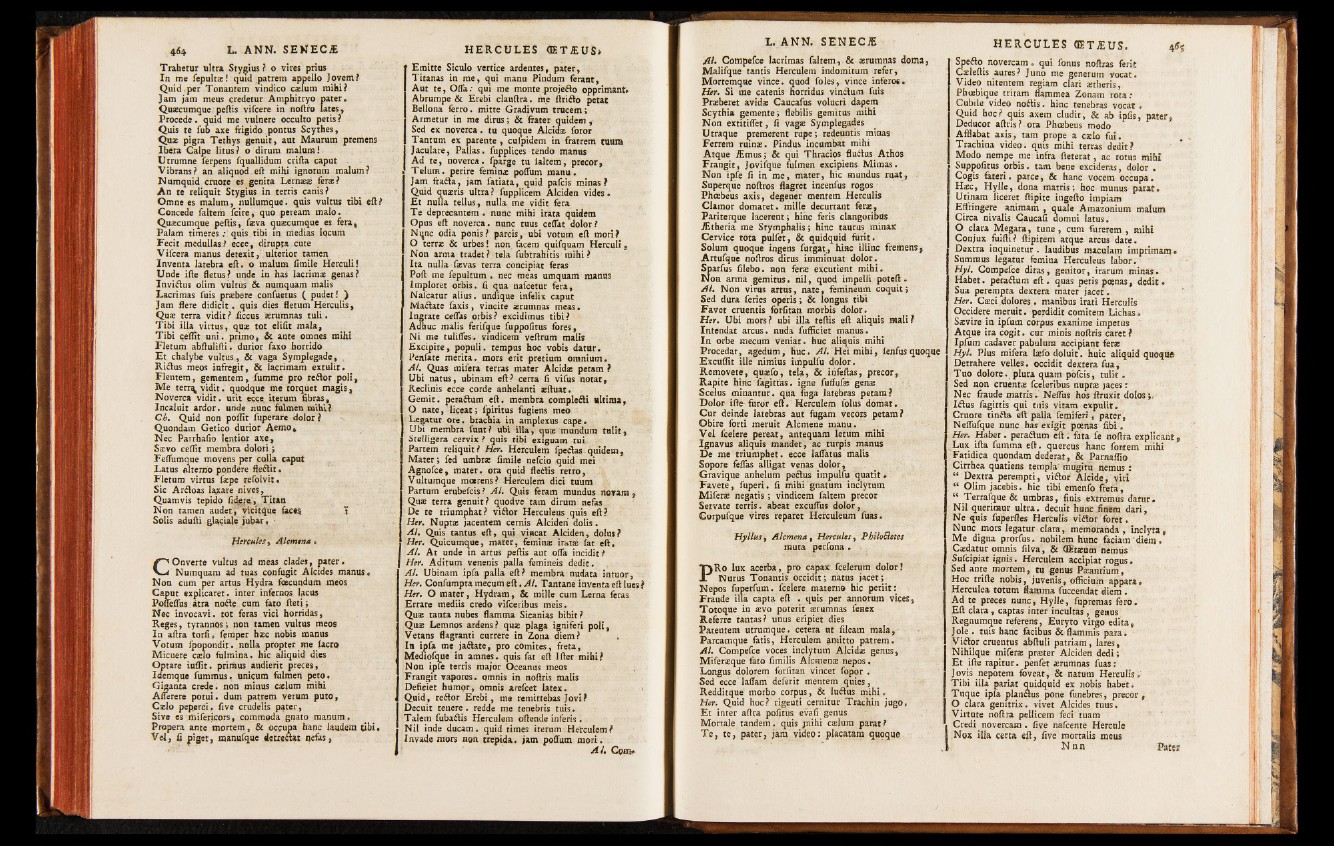 464 L. ANN. SENECÆ
Trahetur ultra Stygius? o vires prius
In me sepultæ! quid patrem appello Jovem?
Quid per Tonantem vindico cælum mihi?
Jam jam meus credetur Amphitryo pater.
Quæcumque pestis viscere in nostro lates,
Procede. quid me vulnere occulto petis?
Quis te sub axe frigido pontus Scythes,
Quæ pigra Tethys genuit, aut Maurum premens
Ibera Calpe litus? o dirum malum!
Utrumne serpens squallidum crista caput
Vibrans? an aliquod est mihi ignotum malum?
Numquid cruore es genita Lernææ feræ?
An te reliquit Stygius in terris canis?
Omne es malum, nullumque. quis vultus tibi est?
Concede saltem scire, quo peream malo.
Quæcumque pestis, sæva quæcumque es fera,
Palam timeres: quis tibi in medias locum
Fecit medullas? ecce, dirupta cute
Viscera manus detexit, ulterior tamen
Inventa latebra est. o malum simile Herculi!
Unde iste fletus? unde in has lacrimæ genas?
Invictus olim vultus & numquam malis
Lacrimas suis præbere consuetus (pudet!)
Jam flere didicit. quis dies fletum Herculis,
Quæ terra vidit? siccus ærumnas tuli.
Tibi illa virtus, quæ tot elisit mala,
Tibi cessit uni. primo, & ante omnes mihi
Fletum abstulisti. durior saxo horrido
Et chalybe vultus, & vaga Symplegade,
Rictus meos infregit, & lacrimam extulit.
Flentem, gementem, summe pro rector poli,
Me terra vidit. quodque me torquet magis,
Noverca vidit. urit ecce iterum fibras,
Incaluit ardor. unde nunc fulmen mihi?
Ch. Quid non possit superare dolor?
Quondam Getico durior Aemo,
Nec Parrhasio lentior axe,
Sævo cessit membra dolori;
Fessumque movens per colla caput
Latus alterno pondere flectit.
Fletum virtus sæpe resolvit.
Sic Arctoas laxare nives,
Quamvis tepido sidere, Titan
Non tamen audet, vicitque faces
Solis adusti glaciale jubar.
Hercules, Alcmena.
COnverte vultus ad meas clades, pater.
Numquam ad tuas confugit Alcides manus.
Non cum per artus Hydra fœcundum meos
Caput explicaret. inter infernos lacus
Possessus atra nocte cum fato steti;
Nec invocavi. tot feras vici horridas,
Reges, tyrannos; non tamen vultus meos
In astra torsi. semper hæc nobis manus
Votum spopondit. nulla propter me sacro
Micuere cælo fulmina. hic aliquid dies
Optare jussit. primus audierit preces,
Idemque summus. unicum fulmen peto.
Giganta crede. non minus cælum mihi
Asserere potui. dum patrem verum puto,
Cælo peperci. sive crudelis pater,
Sive es misericors, commoda gnato manum.
Propera ante mortem, & occupa hanc laudem tibi.
Vel, si piget, manusque detrectat nefas,
HERCULES ŒTÆUS.
Emitte Siculo vertice ardentes, pater,
Titanas in me, qui manu Pindum ferant,
Aut te, Ossa: qui me monte projecto opprimant.
Abrumpe & Erebi claustra. me stricto petat
Bellona ferro. mitte Gradivum trucem;
Armetur in me dirus; & frater quidem,
Sed ex noverca. tu quoque Alcidæ soror
Tantum ex parente, cuspidem in fratrem tuum
Jaculare, Pallas. supplices tendo manus
Ad te, noverca. sparge tu saltem, precor,
Telum. perire feminæ possum manu.
Jam fracta, jam satiata, quid pascis minas?
Quid quæris ultra? supplicem Alciden vides.
Et nulla tellus, nulla me vidit fera
Te deprecantem. nunc mihi irata quidem
Opus est noverca. nunc tuus cessat dolor?
Nunc odia ponis? parcis, ubi votum est mori?
O terræ & urbes! non facem quisquam Herculi,
Non arma tradet? tela subtrahitis mihi?
Ita nulla sævas terra concipiat feras
Post me sepultum. nec meas umquam manus
Imploret orbis. si qua nascetur fera,
Nascatur alius. undique infelix caput
Mactate saxis, vincite ærumnas meas.
Ingrate cessas orbis? excidimus tibi?
Adhuc malis ferisque suppositus fores,
Ni me tulisses. vindicem vestrum malis
Excipite, populi. tempus hoc vobis datur.
Pensate merita. mors erit pretium omnium.
Al. Quas misera terras mater Alcidæ petam?
Ubi natus, ubinam est? certa si visus notat,
Reclinis ecce corde anhelanti æstuat.
Gemit. peractum est. membra complecti ultima,
O nate, liceat; spiritus fugiens meo
Legatur ore. brachia in amplexus cape.
Ubi membra sunt? ubi illa, quæ mundum tulit,
Stelligera cervix? quis tibi exiguam tui
Partem reliquit? Her. Herculem spectas quidem,
Mater; sed umbræ simile nescio quid mei
Agnosce, mater. ora quid flectis retro,
Vultumque mœrens? Herculem dici tuum
Partum erubescis? Al. Quis feram mundus novam,
Quæ terra genuit? quodve tam dirum nefas
De te triumphat? victor Herculeus quis est?
Her. Nuptæ jacentem cernis Alciden dolis.
Al. Quis tantus est, qui vincat Alciden, dolus?
Her. Quicumque, mater, feminæ iratæ sat est.
Al. At unde in artus pestis aut ossa incidit?
Her. Aditum venenis palla femineis dedit.
Al. Ubinam ipsa palla est? membra nudata intuor.
Her. Consumpta mecum est. Al. Tantane inventa est lues?
Her. O mater, Hydram, & mille cum Lerna feras
Errare mediis credo visceribus meis.
Quæ tanta nubes flamma Sicanias bibit?
Quæ Lemnos ardens? quæ plaga igniferi poli,
Vetans flagranti currere in Zona diem?
In ipsa me jactate, pro comites, freta,
Mediosque in amnes. quis sat est Ister mihi?
Non ipse terris major Oceanus meos
Frangit vapores. omnis in nostris malis
Deficiet humor, omnis arescet latex.
Quid, rector Erebi, me remittebas Jovi?
Decuit tenere. redde me tenebris tuis.
Talem subactis Herculem ostende inferis.
Nil inde ducam. quid times iterum Herculem?
Invade mors non trepida. jam possum mori.
Al. Com-
L. ANN. SENECÆ
Al. Compesce lacrimas saltem, & ærumnas doma,
Malisque tantis Herculem indomitum refer,
Mortemque vince. quod soles, vince inferos.
Her. Si me catenis horridus vinctum suis
Præberet avidæ Caucasus volucri dapem
Scythia gemente; flebilis gemitus mihi
Non extitisset, si vagæ Symplegades
Utraque premerent rupe; redeuntis minas
Ferrem ruinæ. Pindus incumbat mihi
Atque Æmus; & qui Thracios fluctus Athos
Frangit, Jovisque fulmen excipiens Mimas.
Non ipse si in me, mater, hic mundus ruat,
Superque nostros flagret incensus rogos
Phœbeus axis, degener mentem Herculis
Clamor domaret. mille decurrant feræ,
Pariterque lacerent; hinc feris clangoribus
Ætheria me Stymphalis; hinc taurus minax
Cervice tota pulset, & quidquid fuit.
Solum quoque ingens surgat, hinc illinc fremens,
Artusque nostros dirus imminuat dolor.
Sparsus silebo. non feræ excutient mihi.
Non arma gemitus. nil, quod impelli potest.
Al. Non virus artus, nate, femineum coquit;
Sed dura series operis; & longus tibi
Favet cruentis forsitan morbis dolor.
Her. Ubi mors? ubi illa testis est aliquis mali?
Intendat arcus. nuda sufficiet manus.
In orbe mecum veniat. huc aliquis mihi
Procedat, agedum, huc. Al. Hei mihi, sensus quoque
Excussit ille nimius impulsu dolor.
Removete, quæso, tela, & infestas, precor,
Rapite hinc sagittas. igne suffusæ genæ
Scelus minantur. qua fuga latebras petam?
Dolor iste furor est. Herculem solus domat.
Cur deinde latebras aut fugam vecors petam?
Obire forti meruit Alcmene manu.
Vel scelere pereat, antequam letum mihi
Ignavus aliquis mandet, ac turpis manus
De me triumphet. ecce lassatus malis
Sopore fessas alligat venas dolor,
Gravique anhelum pectus impulsu quatit.
Favete, superi. si mihi gnatum inclytum
Miseræ negatis; vindicem saltem precor
Servate terris. abeat excussus dolor,
Corpusque vires reparet Herculeum suas.
Hyllus, Alcmena, Hercules, Philoctetes
muta persona.
PRo lux acerba, pro capax scelerum dolor!
Nurus Tonantis occidit; natus jacet;
Nepos superfum. scelere materno hic periit:
Fraude illa capta est. quis per annorum vices,
Totoque in ævo poterit ærumnas senex
Referre tantas? unus eripiet dies
Parentem utrumque. cetera ut sileam mala,
Parcamque fatis, Herculem amitto patrem.
Al. Compesce voces inclytum Alcidæ genus,
Miseræque fato similis Alcmenæ nepos.
Longus dolorem forsitan vincet sopor.
Sed ecce lassam deserit mentem quies,
Redditque morbo corpus, & luctus mihi.
Her. Quid hoc? rigenti cernitur Trachin jugo,
Et inter astra positus evasi genus
Mortale tandem. quis mihi cælum parat?
Te, te, pater, jam video: placatam quoque
HERCULES ŒTÆUS. 465
Specto novercam. qui sonus nostras ferit
Cælestis aures? Juno me generum vocat.
Video nitentem regiam clari ætheris,
Phœbique tritam flammea Zonam rota:
Cubile video noctis. hinc tenebras vocat.
Quid hoc? quis axem cludit, & ab ipsis, pater,
Deducor astris? ora Phœbeus modo
Afflabat axis, tam prope a cælo fui.
Trachina video. quis mihi terras dedit?
Modo nempe me infra steterat, ac totus mihi
Suppositus orbis. tam bene excideras, dolor.
Cogis fateri. parce, & hanc vocem occupa.
Hæc, Hylle, dona matris; hoc munus parat.
Utinam liceret stipite ingesto impiam
Effringere animam, quale Amazonium malum
Circa nivalis Caucasi domui latus.
O clara Megara, tune, cum furerem, mihi
Conjux fuisti? stipitem atque arcus date.
Dextra inquinetur. laudibus maculam imprimam.
Summus legatur femina Herculeus labor.
Hyl. Compesce diras, genitor, irarum minas.
Habet. peractum est. quas petis pœnas, dedit.
Sua perempta dextera mater jacet.
Her. Cæci dolores, manibus irati Herculis
Occidere meruit. perdidit comitem Lichas.
Sævire in ipsum corpus exanime impetus
Atque ira cogit. cur minis nostris caret?
Ipsum cadaver pabulum accipiant feræ
Hyl. Plus misera læso doluit. huic aliquid quoque
Detrahere velles. occidit dextera sua,
Tuo dolore. plura quam poscis, tulit.
Sed non cruentæ sceleribus nuptæ jaces:
Nec fraude matris. Nessus hos struxit dolos;
Ictus sagittis qui tuis vitam expulit.
Cruore tincta est palla semiferi, pater,
Nessusque nunc has exigit pœnas sibi.
Her. Habet. peractum est. fata se nostra explicant,
Lux ista summa est. quercus hanc sortem mihi
Fatidica quondam dederat, & Parnassio
Cirrhea quatiens templa mugitu nemus:
“ Dextra perempti, victor Alcide, viri
“ Olim jacebis. hic tibi emenso freta,
“ Terrasque & umbras, finis extremus datur.
Nil querimur ultra. decuit hunc finem dari,
Ne quis superstes Herculis victor foret.
Nunc mors legatur clara, memoranda, inclyta,
Me digna prorsus. nobilem hunc faciam diem.
Cædatur omnis silva, & Œtæum nemus
Suscipiat ignis. Herculem accipiat rogus.
Sed ante mortem, tu genus Pæantium,
Hoc triste nobis, juvenis, officium appara.
Herculea totum flamma succendat diem.
Ad te preces nunc, Hylle, supremas fero.
Est clara, captas inter incultas, genus
Regnumque referens, Euryto virgo edita,
Jole. tuis hanc facibus & flammis para.
Victor cruentus abstuli patriam, lares,
Nihilque miseræ præter Alciden dedi;
Et iste rapitur. penset ærumnas suas:
Jovis nepotem foveat, & natum Herculis.
Tibi illa pariat quidquid ex nobis habet.
Tuque ipsa planctus pone funebres, precor,
O clara genitrix. vivet Alcides tuus.
Virtute nostra pellicem feci tuam
Credi novercam. sive nascente Hercule
Nox illa certa est, sive mortalis meus
Nnn Pater